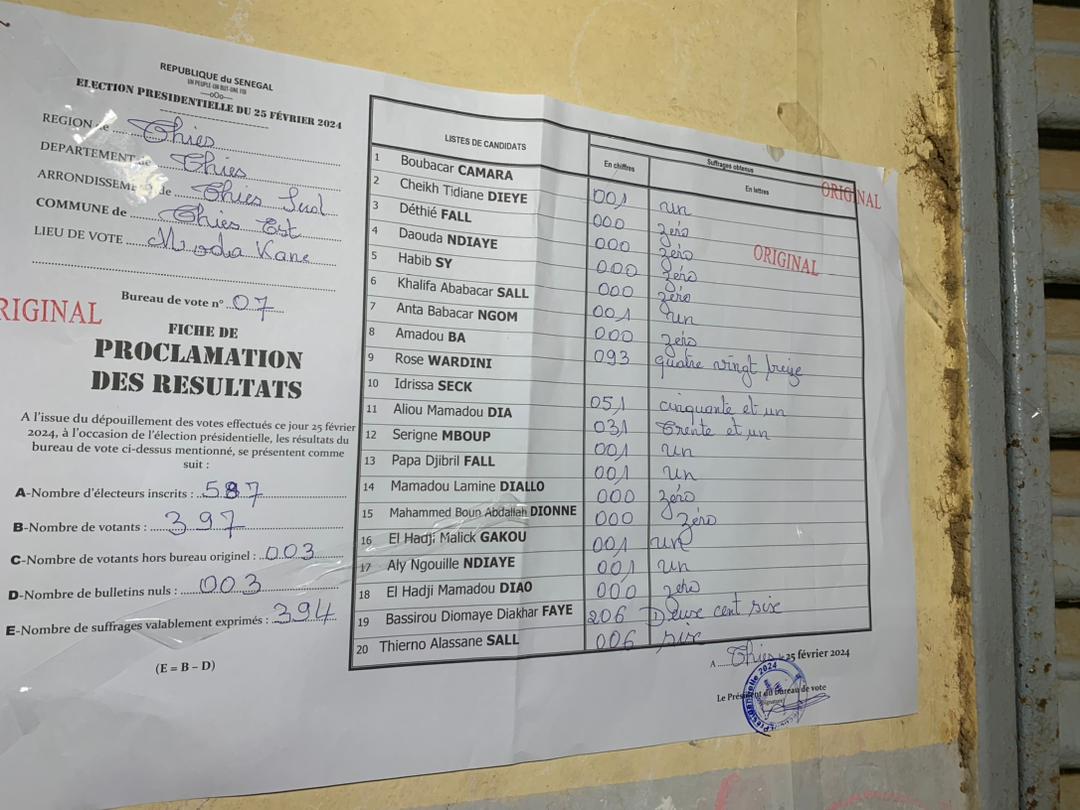 REPUBLIQUE du SENEGAL
UN PEUPLE-UN BUT-UNE FOI
---oOo---
ELECTION PRESIDENTIELLE DU 25 FÉVRIER 2024
REGION de Thies
DEPARTEMENT de Thies
ARRONDISSEMENT de Thies Sud
COMMUNE de Thies Est
LIEU DE VOTE Moda Kane
Bureau de vote n° 07
RIGINAL
FICHE DE
PROCLAMATION
DES RESULTATS
A l'issue du dépouillement des votes effectués ce jour 25 février
2024, à l'occasion de l'élection présidentielle, les résultats du
bureau de vote ci-dessus mentionné, se présentent comme
suit :
A-Nombre d'électeurs inscrits : 587
B-Nombre de votants : 397
C-Nombre de votants hors bureau originel : 003
D-Nombre de bulletins nuls : 003
E-Nombre de suffrages valablement exprimés : 394
(E = B – D)
LISTES DE CANDIDATS
Suffrages obtenus
En chiffres En lettres
ORIGINAL
ORIGINAL
1 Boubacar CAMARA 001 un
2 Cheikh Tidiane DIEYE 000 zéro
3 Déthié FALL 000 zéro
4 Daouda NDIAYE 000 zéro
5 Habib SY 000 zéro
6 Khalifa Ababacar SALL 001 un
7 Anta Babacar NGOM 000 zéro
8 Amadou BA 093 quatre vingt treize
9 Rose WARDINI
10 Idrissa SECK 051 cinquante et un
11 Aliou Mamadou DIA 031 Trente et un
12 Serigne MBOUP 001 un
13 Papa Djibril FALL 001 un
14 Mamadou Lamine DIALLO 000 zéro
15 Mahammed Boun Abdallah DIONNE 000 zéro
16 El Hadji Malick GAKOU 001 un
17 Aly Ngouille NDIAYE 001 un
18 El Hadji Mamadou DIAO 000 zéro
19 Bassirou Diomaye Diakhar FAYE 206 Deux cent six
20 Thierno Alassane SALL 006 six
A Thies 25 février 2024
Le Président du Bureau de vote